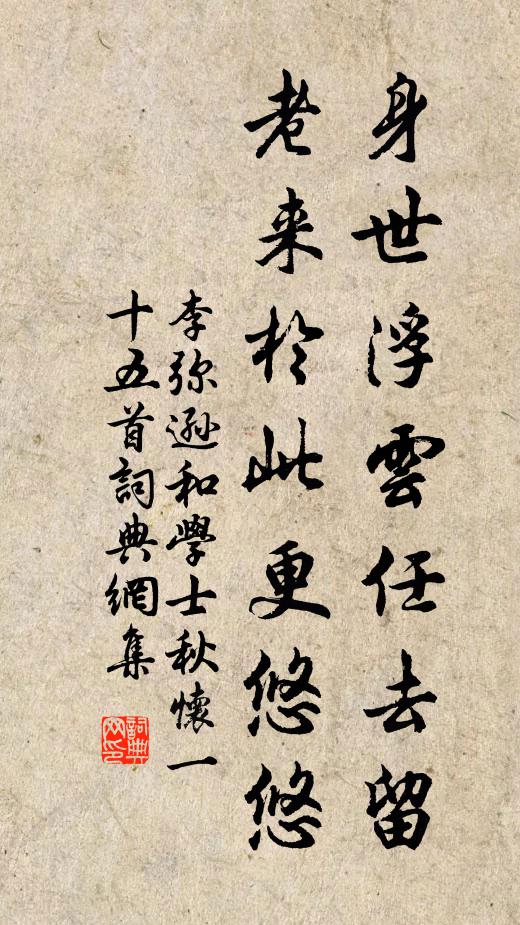 身世浮雲任去留
老来於此更悠悠
李弥遜和學士秋懷一
十五首詞典網集
詞典网印